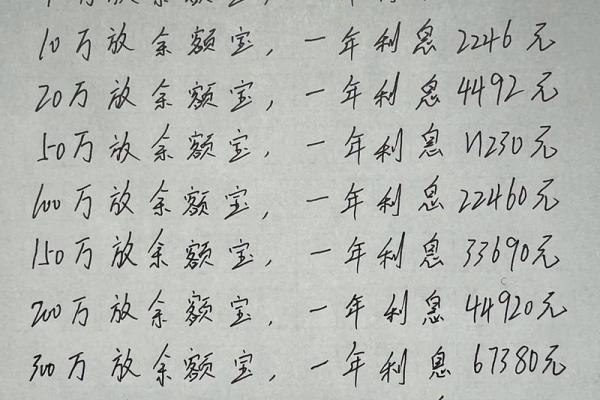 10万放余额宝，一年利息2246元
20万放余额宝，一年利息4492元
50万放余额宝，一年利息11230元
100万放余额宝，一年利息22460元
150万放余额宝，一年利息33690元
200万放余额宝，一年利息44920元
300万放余额宝，一年利息67380元